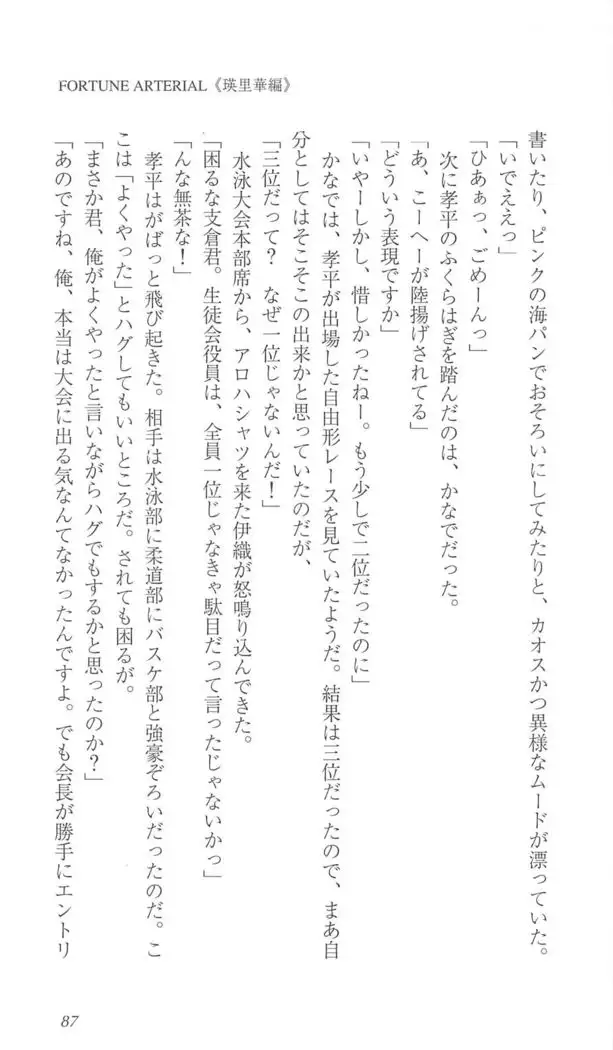 FORTUNE ARTERIAL《瑛里華編》
書いたり、ピンクの海パンでおそろいにしてみたりと、カオスかつ異様なムードが漂っていた。
「いでええっ」
「ひあぁっ、ごめーんっ」
次に孝平のふくらはぎを踏んだのは、かなでだった。
「あ、こーへーが陸揚げされてる」
「どういう表現ですか」
「いやーしかし、惜しかったねー。もう少しで二位だったのに」
かなでは、孝平が出場した自由形レースを見ていたようだ。結果は三位だったので、まあ自
分としてはそこそこの出来かと思っていたのだが、
「三位だって？　なぜ一位じゃないんだ！」
水泳大会本部席から、アロハシャツを来た伊織が怒鳴り込んできた。
「困るな支倉君。生徒会役員は、全員一位じゃなきゃ駄目だって言ったじゃないかっ」
「んな無茶な！」
孝平はがばっと飛び起きた。相手は水泳部に柔道部にバスケ部と強豪ぞろいだったのだ。こ
こは「よくやった」とハグしてもいいところだ。されても困るが。
「まさか君、俺がよくやったと言いながらハグでもするかと思ったのか？」
「あのですね、俺、本当は大会に出る気なんてなかったんですよ。でも会長が勝手にエントリ
87